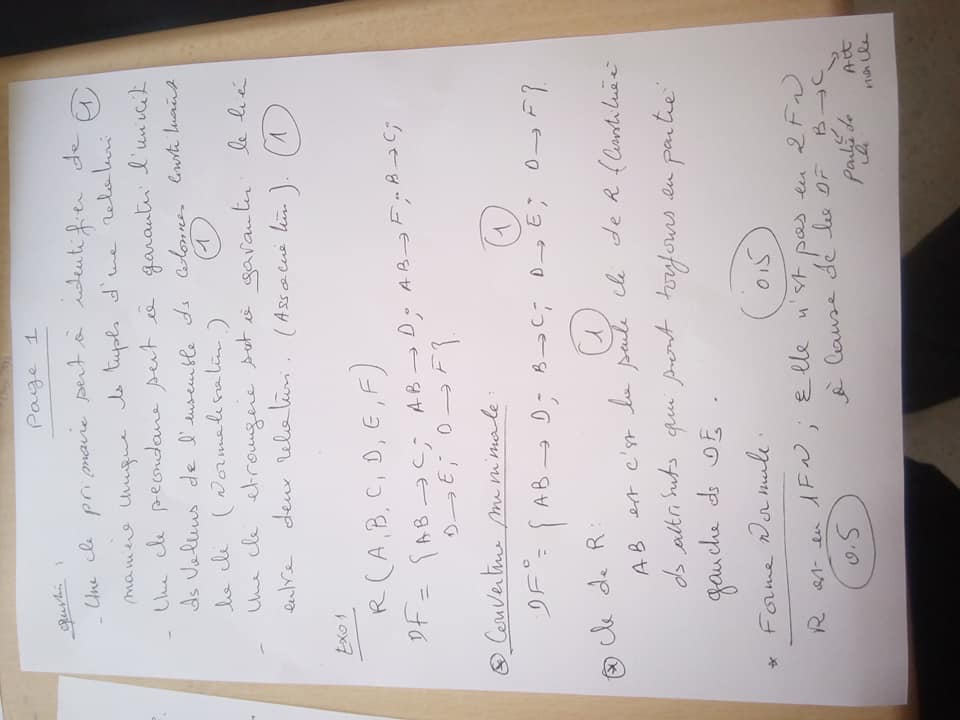 Page 1
question :
- Une cle primaire sert à identifier de
manière unique les tuples d'une relation 1
- Une cle secondaire sert à garantir l'unicité
ds valeurs de l'ensemble ds colonnes constituant
la clé (Normalisation) 1
- Une cle etrangère sert à garantir le lien
entre deux relation. (Association). 1
Exo1
R(A, B, C, D, E, F)
DF = {AB → C; AB → D; AB → F; B → C;
D → E; D → F}.
* Couverture minimale: 1
DF° = {AB → D; B → C; D → E; D → F}.
* Cle de R: 1
AB est c'est la seule clé de R (Constituée
ds attributs qui sont toujours en partie
gauche ds DFs.
* Forme Normale: 0,5
R est en 1FN ; Elle n'est pas en 2FN
0.5 à cause de la DF B → C
partie de cle Att non cle